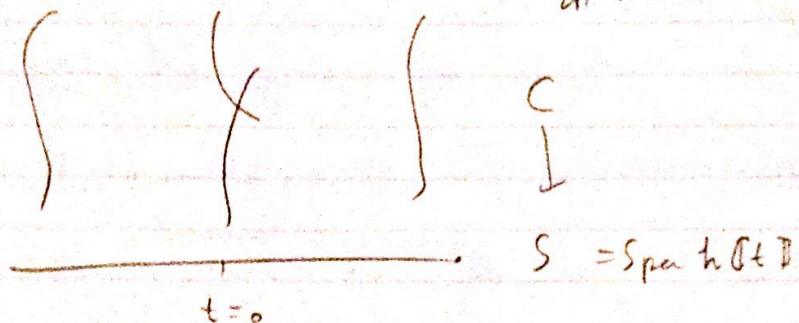 C
↓
S = Spec k[[t]]
t = 0